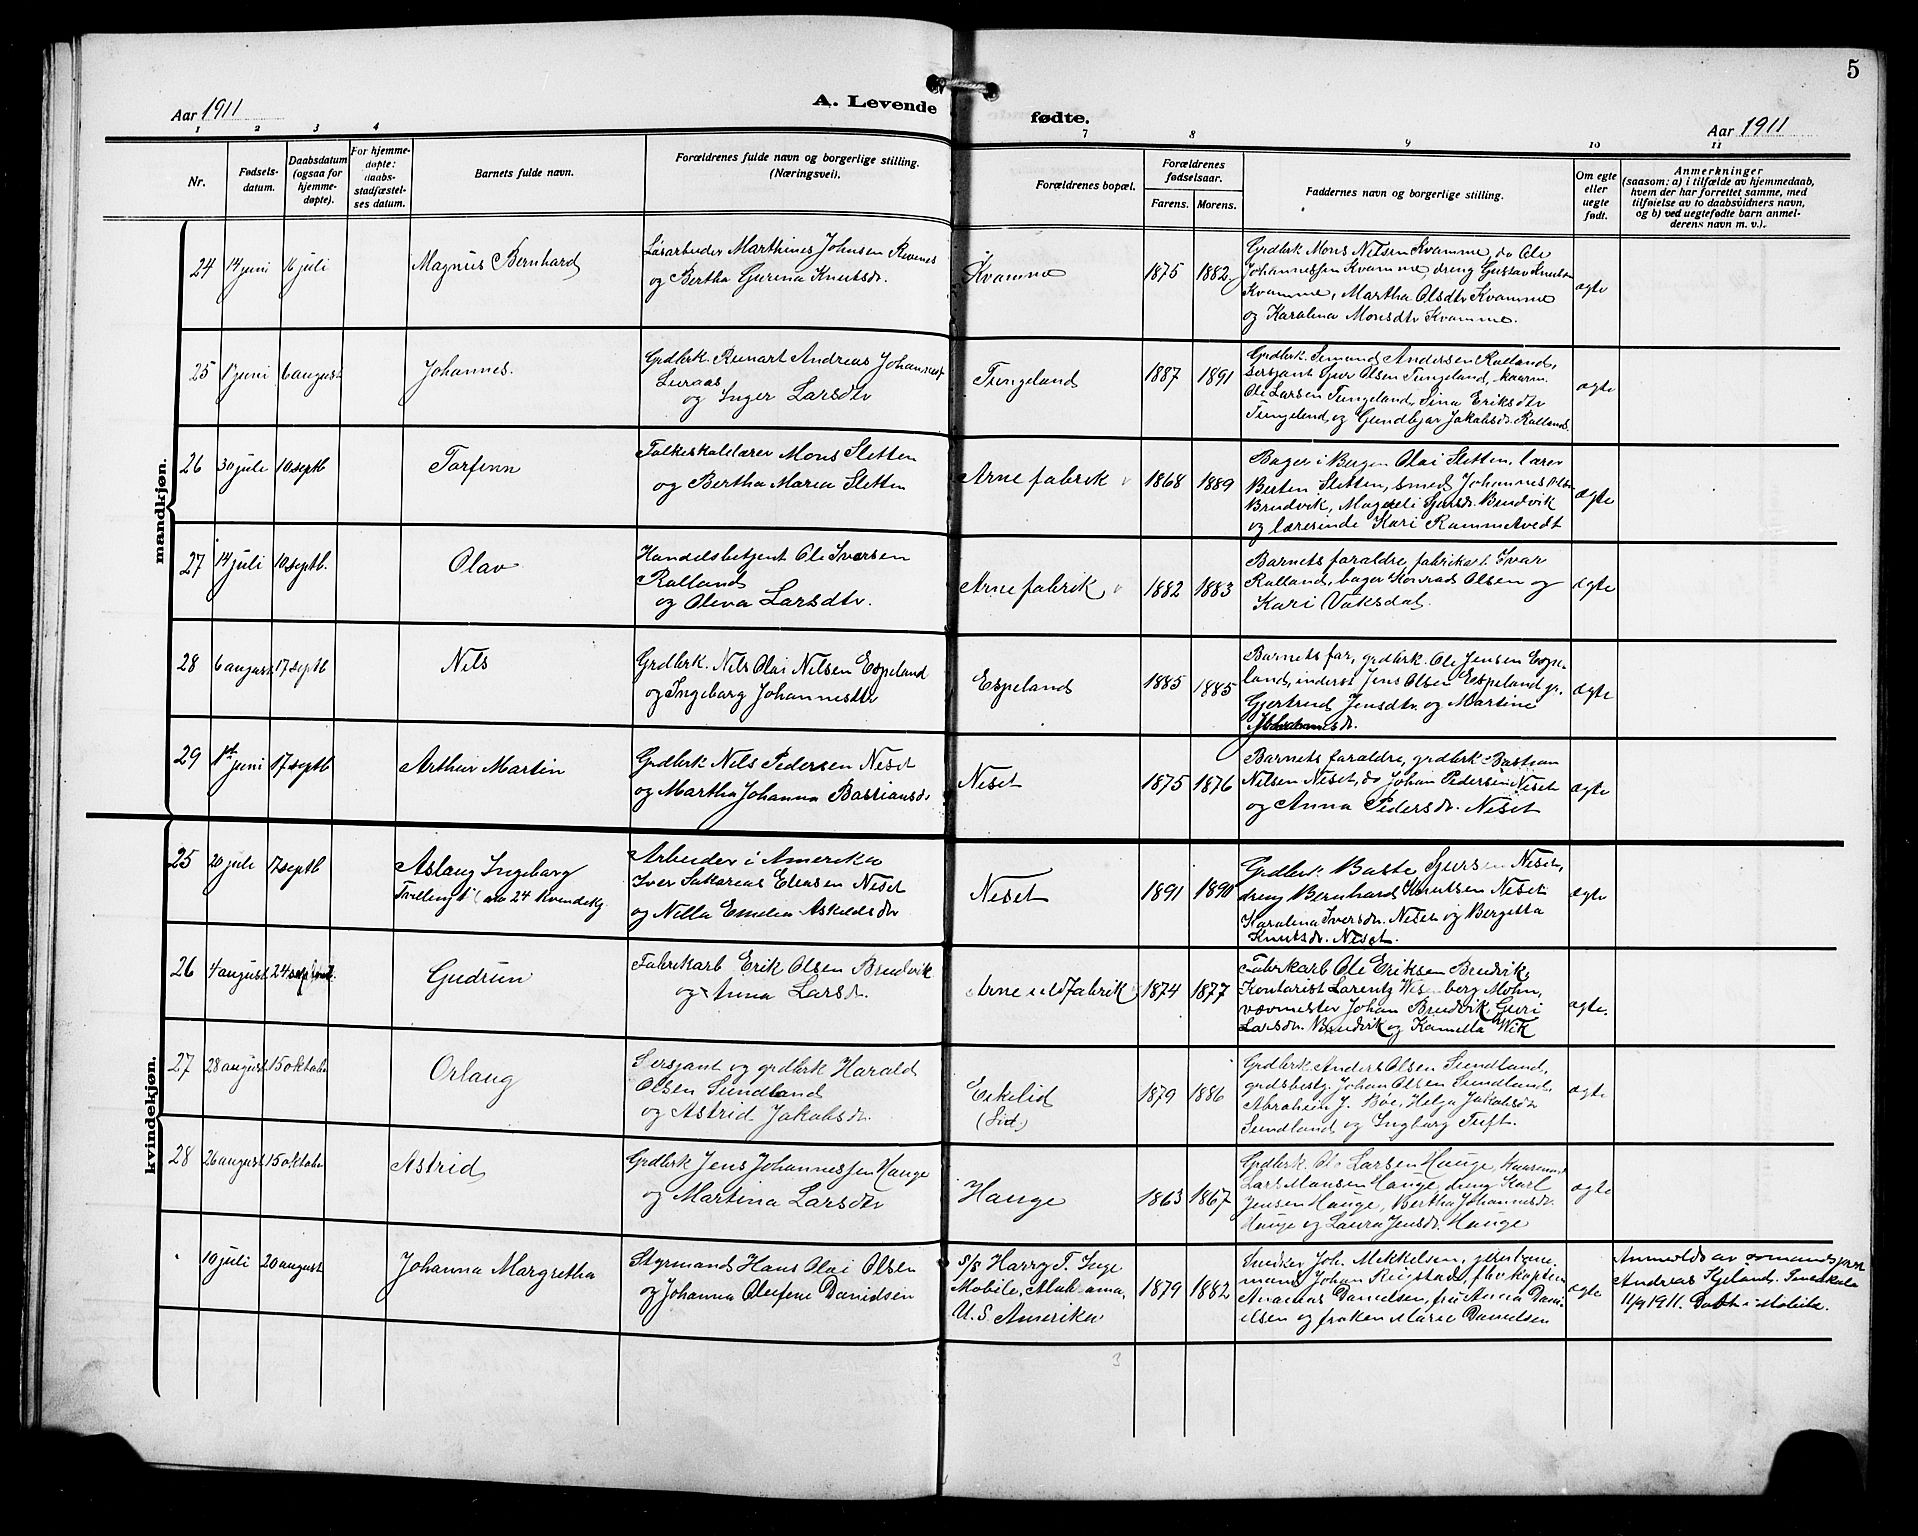 5
Aar 1911
A. Levende
fødte.
Aar 1911
1 2 3 4 7 8 9 10 11
Nr.
Fødsels-
datum.
Daabsdatum
(ogsaa for
hjemme-
døpte).
For hjemme-
døpte:
daabs-
stadfæstel-
ses datum.
Barnets fulde navn.
Forældrenes fulde navn og borgerlige stilling.
(Næringsvei).
Forældrenes bopæl.
Forældrenes
fødselsaar.
Farens. Morens.
Faddernes navn og borgerlige stilling.
Om egte
eller
uegte
født.
Anmerkninger
(saasom: a) i tilfælde av hjemmedaab,
hvem der har forrettet samme, med
tilføielse av to daabsvidners navn,
og b) ved uegtefødte barn anmel-
derens navn m. v.).
mandkjøn.
24 14 juni 16 juli
Magnus Bernhard
Løsarbeider Marthines Johnsen Revnes
og Bertha Gurina Knutsdr.
Kvamme
1875 1882
Grdbrk Mons Nilsen Kvamme, do Ole
Johannessen Kvamme, dreng Gustav Knutsen
Kvamme, Martha Olsdtr Kvamme
og Karolina Monsdtr Kvamme.
ægte
25 1 juni 6 august
Johannes.
Grdbrk. Runart Andreas Johannesen
Luraas
og Inger Larsdtr
Tungeland
1887 1891
Grdbrk. Simund Andersen Rolland,
Sersjant Sjur Olsen Tungeland,
Ole Larsen Tungeland, Sina Eriksdtr
Tungeland og Gundbjør Jakobsdr. Rolland
ægte
26 30 juli 10 septb
Torfinn
Folkeskolelærer Mons Sletten
og Bertha Maria Sletten
Arne fabrik
1868 1889
Bager i Bergen Olai Sletten, lærer
Berten Sletten, smed Johannes Olsen
Brudvik, Mageli Sjursdr. Brudvik
og lærerinde Kari Rommetvedt
ægte
27 14 juli 10 septb.
Olav
Handelsbetjent Ole Iversen
Rolland
og Oleva Larsdtr.
Arne fabrik
1882 1883
Barnets forældre, fabrikarb. Ivar
Rolland, bager Konrad Olsen og
Kari Vaksdal.
ægte
28 6 august 17 septb
Nils
Grdbrk. Nils Olai Nilsen Espeland
og Ingeborg Johannesdtr
Espeland
1885 1885
Barnets far, grdbrk. Ole Jensen Espe-
land, inderst Jens Olsen Espeland, pr.
Gjertrud Jensdtr. og Martine
ægte
29 1ste juni 17 septb
Arthur Martin
Grdbrk Nils Pedersen Neset
og Martha Johanna Bastiansdr
Neset
1875 1876
Barnets forældre, grdbrk Bastian
Nilsen Neset, do Johan Pedersen Neset
og Anna Pedersdr. Neset
ægte
kvindekjøn.
25 20 juli 17 septb
Aslaug Ingeborg
Tvilling til no 24 kvindekj
Arbeider i Amerika
Iver Sakarias Eliasen Neset
og Nilla Emilia Askildsdtr
Neset
1891 1890
Grdbrk Baste Sjursen Neset,
dreng Bernhard Knutsen Neset
Karolina Iversdr. Neset og Bergitta
Knutsdr. Neset.
ægte
26 4 august 24 septemb.
Gudrun
Fabrikarb Erik Olsen Brudvik
og Anna Larsdr.
Arne uldfabrik
1874 1877
Fabrikarb Ole Eriksen Brudvik,
Kontorist Lorentz Wesenberg Mohn,
vævmester Johan Brudvik, Guri
Larsdr. Brudvik og Kamilla Wik
ægte.
27 28 august 15 oktober
Orlaug
Sersjant og grdbrk Harald
Olsen Sundland
og Astrid Jakobsdr.
Eskelid
(Lid)
1879 1886
Grdbrk Anders Olsen Sundland,
grdsbest. Johan Olsen Sundland,
Abraham J. Bøe, Helga Jakobsdtr
Sundland og Ingborg Tuft.
ægte
28 26 august 15 oktober
Astrid
Grdbrk Jens Johannessen Hauge
og Martina Larsdtr
Hauge
1863 1867
Grdbrk. Ole Larsen Hauge, kaarmand
Lars Monsen Hauge, dreng Karl
Jensen Hauge, Bertha Johannesdr.
Hauge og Laura Jensdr. Hauge
ægte
" 10 juli 20 august
Johanna Margretha
Styrmand Hans Olai Olsen
og Johanna Olefine Danielsen
S/S Harry T. Inge
Mobile, Alabama,
U. S. Amerika
1879 1882
Snedker Joh. Mikkelsen,
mand Johan Reigstad, fhv kaptein
Andreas Danielsen, fru Anna Dani-
elsen og frøken Marie Danielsen
ægte
Anmeldt av sømandsprest
Andreas Tjeland. Pensakola
11/9 1911. Døbt i Mobile.
3